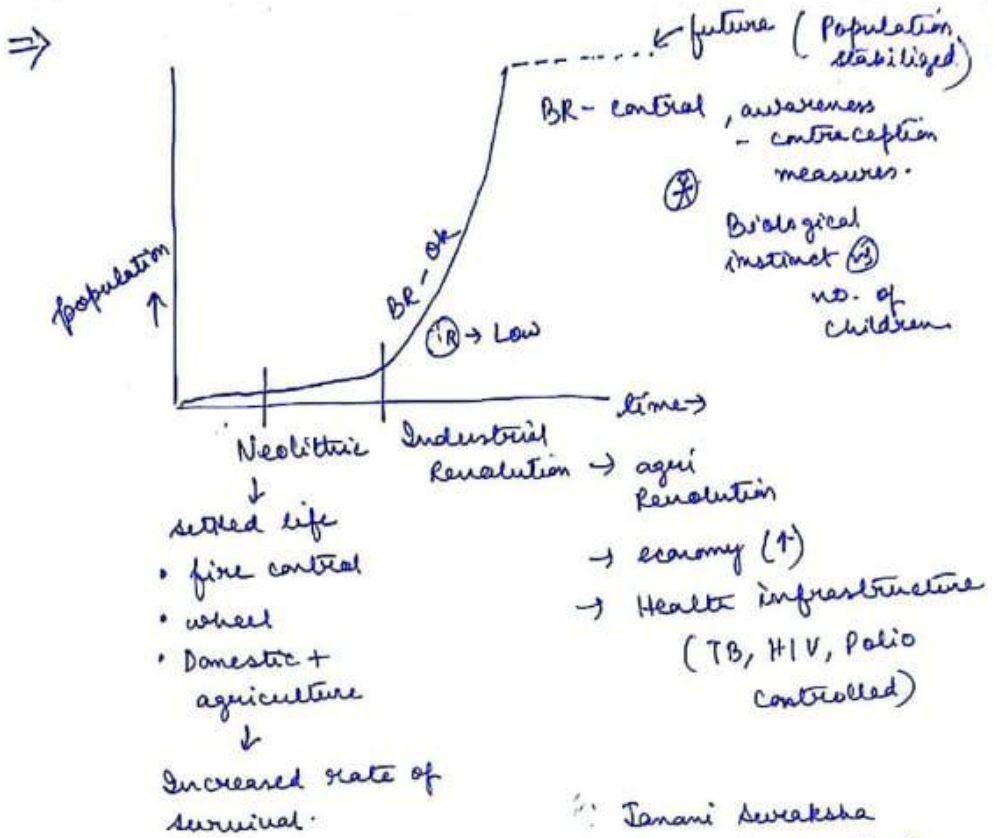 ⇒
future (Population
stabilized)
BR - control, awareness
- contraception
measures.
Biological
instinct vs
no. of
children
population
↑
BR - ok
→ Low
time →
Neolithic
↓
settled life
• fire control
• wheel
• Domestic +
agriculture
↓
Increased rate of
survival.
Industrial
Revolution → agri
Revolution
→ economy (↑)
→ Health infrastructure
(TB, HIV, Polio
controlled)
Janani Suraksha